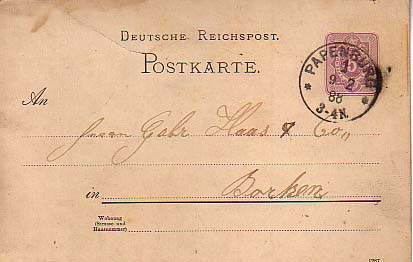 DEUTSCHE REICHSPOST.
POSTKARTE.
PAPENBURG
1
9 2
86
* 3-4N. *
5
An
Herrn Gebr Haas & Co.,
in Borken
Wohnung
(Strasse und
Hausnummer)